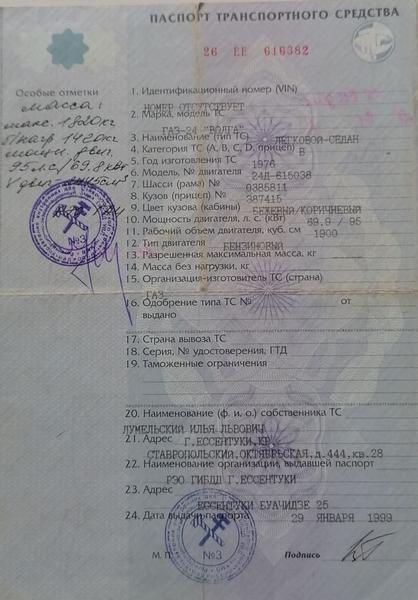 ПАСПОРТ ТРАНСПОРТНОГО СРЕДСТВА
26 ЕЕ 616382
Особые отметки
масса:
макс. 1820кг
б/нагр 1420кг
мощн. двиг.
95лс/69.8 квт
1. Идентификационный номер (VIN)
НОМЕР ОТСУТСТВУЕТ
2. Марка, модель ТС
ГАЗ-24 "ВОЛГА"
3. Наименование (тип ТС) ЛЕГКОВОЙ-СЕДАН
4. Категория ТС (А, В, С, D, прицеп) В
5. Год изготовления ТС 1976
6. Модель, № двигателя 24Д-615038
7. Шасси (рама) № 0385811
8. Кузов (прицеп) № 387415
9. Цвет кузова (кабины) БЕЖЕВЫЙ/КОРИЧНЕВЫЙ
10. Мощность двигателя, л. с. (кВт) 69.9 / 95
11. Рабочий объем двигателя, куб. см 1900
12. Тип двигателя БЕНЗИНОВЫЙ
13. Разрешенная максимальная масса, кг
14. Масса без нагрузки, кг
15. Организация-изготовитель ТС (страна)
ГАЗ
16. Одобрение типа ТС № от
выдано
17. Страна вывоза ТС
18. Серия, № удостоверения, ГТД
19. Таможенные ограничения
20. Наименование (ф. и. о.) собственника ТС
ЛУМЕЛЬСКИЙ ИЛЬЯ ЛЬВОВИЧ
21. Адрес Г.ЕССЕНТУКИ,КР.
СТАВРОПОЛЬСКИЙ.ОКТЯБРЬСКАЯ,д.444,кв.28
22. Наименование организации, выдавшей паспорт
РЭО ГИБДД Г.ЕССЕНТУКИ
23. Адрес
ЕССЕНТУКИ БУАЧИДЗЕ 25
24. Дата выдачи паспорта 29 ЯНВАРЯ 1999
М. П. Подпись
№3
№3